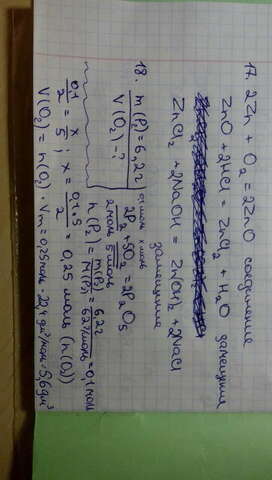 17. 2Zn + O₂ = 2ZnO соединение
ZnO + 2HCl = ZnCl₂ + H₂O замещения
ZnCl₂ + 2NaOH = Zn(OH)₂ + 2NaCl
замещения
18. m(P₂) = 6,2г
V(O₂) - ?
0,1моль x моль
2P₂ + 5O₂ = 2P₂O₅
2моль 5моль
n(P₂) = m(P₂)/M(P₂) = 6,2г/62г/моль = 0,1моль
0,1/2 = x/5; x = 0,1·5/2 = 0,25 моль (n(O₂))
V(O₂) = n(O₂) · Vm = 0,25моль · 22,4 дм³/моль = 5,6дм³